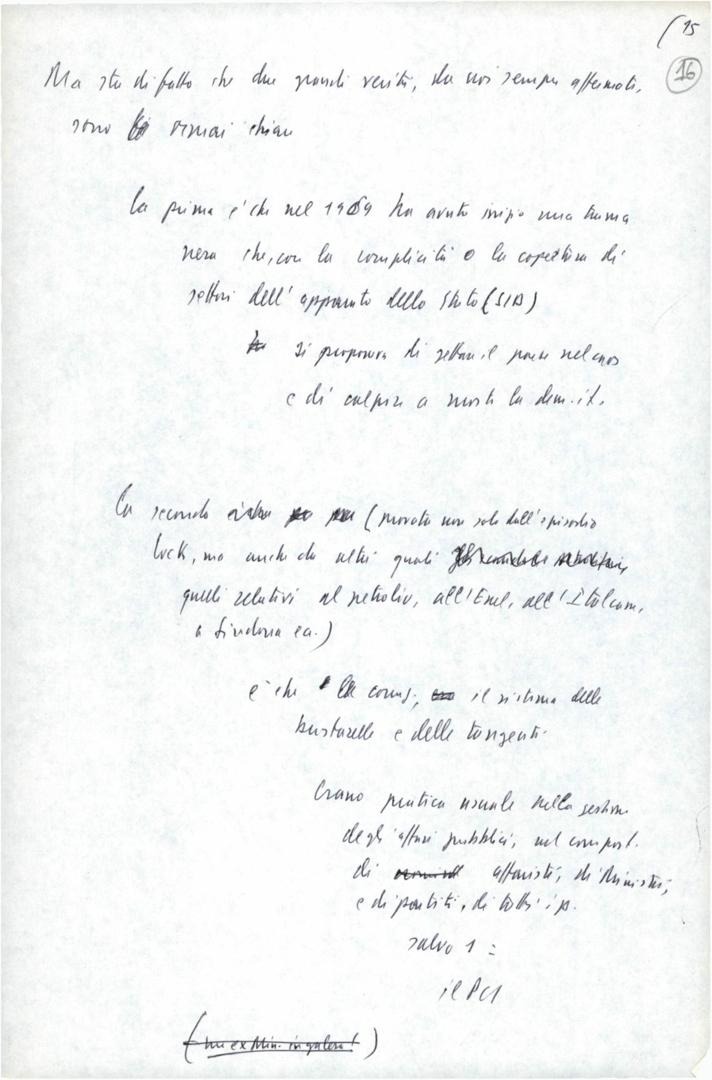 15
16
Ma sta di fatto che due grandi verità, da noi sempre affermate,
sono ormai chiare
La prima è che nel 1969 ha avuto inizio una trama
nera che, con la complicità e la copertura di
settori dell'apparato dello Stato (SID)
si proponeva di gettare il paese nel caos
e di colpire a morte la dem. it.
La seconda (provata non solo dall'episodio
Lock, ma anche da altri quali
quelli relativi al petrolio, all'Enel, all'Italcam,
a Sindona ea.)
è che la corruz, il sistema delle
bustarelle e delle tangenti
Erano pratica usuale nella gestione
degli affari pubblici, nel comport.
di affaristi, di Ministri,
e di partiti, di tutti i p.
salvo 1 :
il PCI
(un ex Min. in galera!)